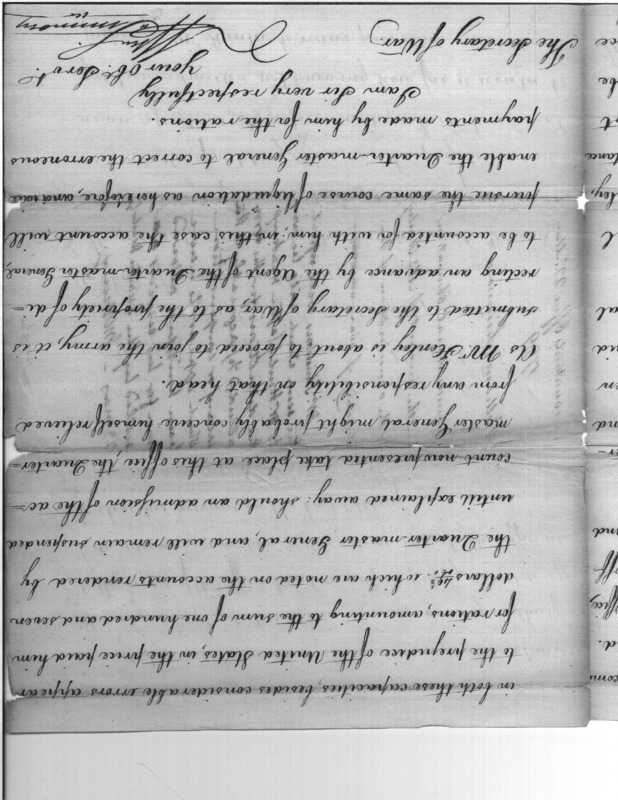 in both these capacities, besides considerable errors appear
to the prejudice of the United States, in the price paid him
for rations, amounting to the sum of one hundred and seven
dollars which are noted on the accounts rendered by
the Quarter-master General, and will remain suspended
untill explained away: should an admission of the ac=
count now presented take place at this office, the Quarter=
master General might probably conceive himself relieved
from any responsibility on that head.
As Mr. Henley is about to proceed to join the army, it is
submitted to the Secretary of War, as to the propriety of di=
recting an advance by the Agent of the Quarter-master General,
to be accounted for with him; in this case the account will
pursue the same course of liquidation as heretofore, and
enable the Quarter-master General to correct the erroneous
payments made by him for the rations.
I am Sir very respectfully
your Obt. Servt.
The Secretary of War